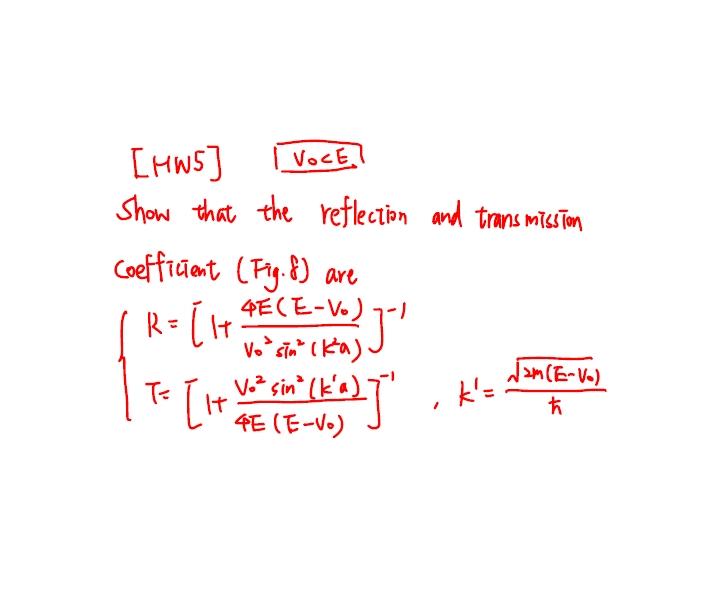 [HW5] V₀<E
Show that the reflection and transmission
coefficient (Fig.8) are
R = [1+ 4E(E-V₀) / V₀² sin² (k'a)]⁻¹
T= [1+ V₀² sin² (k'a) / 4E(E-V₀)]⁻¹ , k' = √2m(E-V₀) / ħ